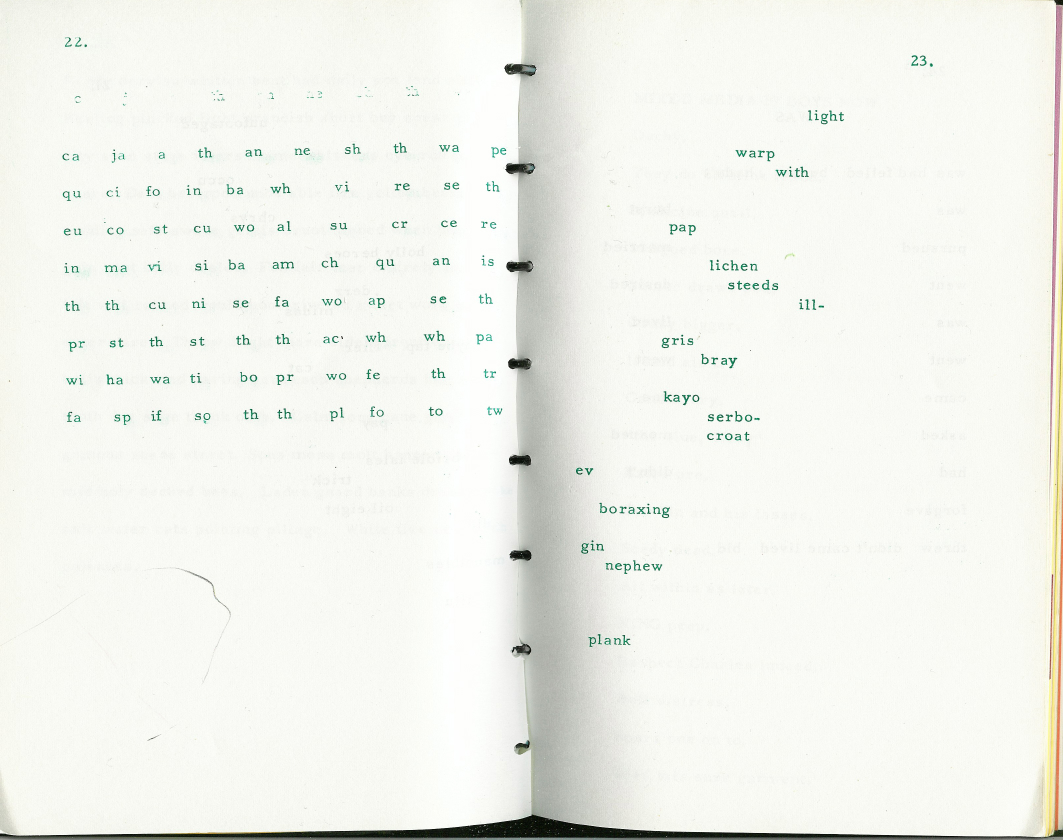 22.
ca ja a th an ne sh th wa pe
qu ci fo in ba wh vi re se th
eu co st cu wo al su cr ce re
in ma vi si ba am ch qu an is
th th cu ni se fa wo ap se th
pr st th st th th ac wh wh pa
wi ha wa ti bo pr wo fe th tr
fa sp if so th th pl fo to tw
23.
light
warp
with
pap
lichen
steeds
ill-
gris
bray
kayo
serbo-
croat
ev
boraxing
gin
nephew
plank